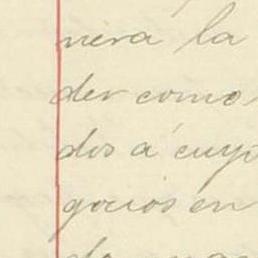 nera la
der como
dos á cuyo
gocios en